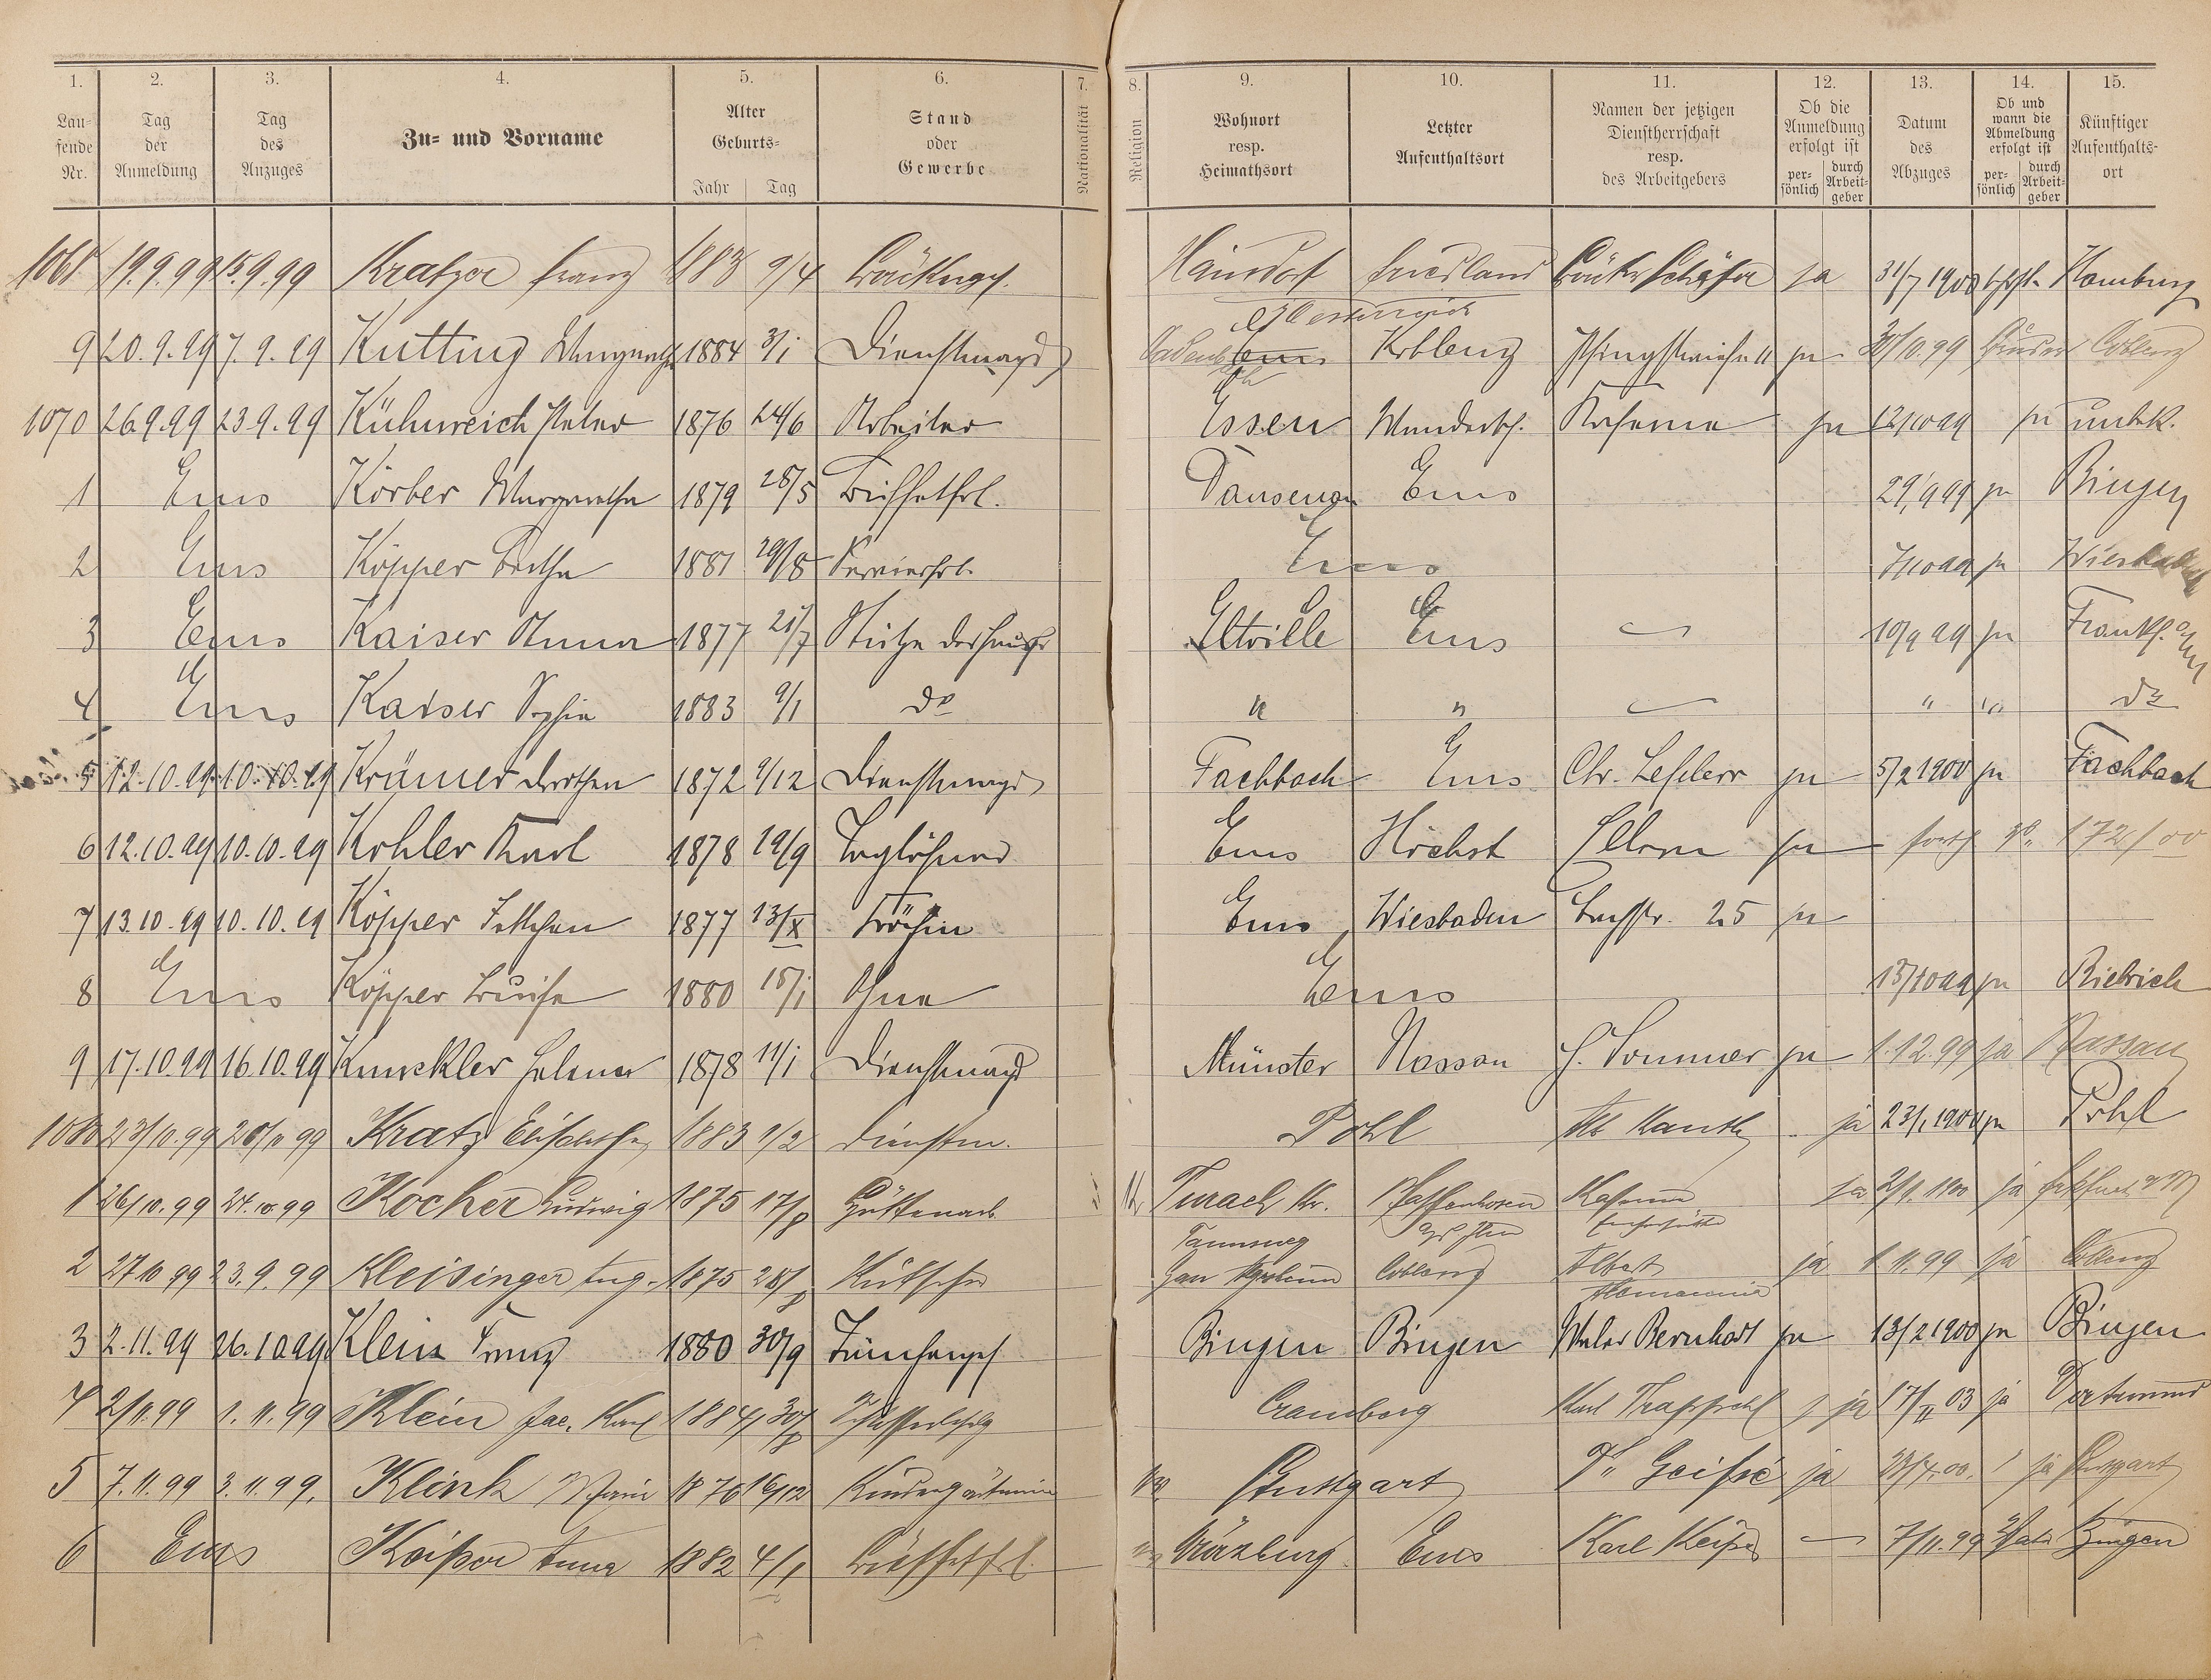 1. 2. 3. 4. 5. 6. 7. 8. 9. 10. 11. 12. 13. 14. 15.
Lau-
fende
Nr.
Tag
der
Anmeldung
Tag
des
Anzuges
Zu- und Vorname
Alter
Geburts-
Jahr Tag
Stand
oder
Gewerbe
Nationalität
Religion
Wohnort
resp.
Heimathsort
Letzter
Aufenthaltsort
Namen der jetzigen
Dienstherrschaft
resp.
des Arbeitgebers
Ob die
Anmeldung
erfolgt ist
per-
sönlich
durch
Arbeit-
geber
Datum
des
Abzuges
Ob und
wann die
Abmeldung
erfolgt ist
per-
sönlich
durch
Arbeit-
geber
Künftiger
Aufenthalts-
ort
1068 19.9.99 15.9.99 Kratzer Franz 1883 9/4 Hainsdorf Friedland Bäcker Schäfer ja 31/7 1900 Homburg
Oesterreich
9 20.9.99 7.9.99 Kutting Margareth 1884 3/1 Dienstmagd Koblenz 11 ja 30/10.99 Coblenz
1070 26.9.99 23.9.99 Kühnreich Peter 1876 24/6 Arbeiter Essen Wandersch. Kaserne ja 12/10 99 ja unbek.
1 Ems Körber Margaretha 1879 28/5 Büffetfrl. Dausenau Ems 29/9 99 ja Bingen
2 Ems Köpper Bertha 1881 29/8 Servierfrl. Ems 7/10 99 ja Wiesbaden
3 Ems Kaiser Anna 1877 21/7 Stütze der Hausfr Eltville Ems 10/9 99 ja Frankf. a/M
4 Ems Kaiser Sophie 1883 9/1 do " " " " do
5 12.10.99 10.10.99 Krämer Dorothea 1872 9/12 Dienstmagd Fachbach Ems Chr. Lefler ja 5/2 1900 ja Fachbach
6 12.10.99 10.10.99 Kohler Karl 1878 19/9 Taglöhner Ems Höchst ja fort 17/2/00
7 13.10.99 10.10.99 Köpper Settchen 1877 13/X Ems Wiesbaden 25 ja
8 Ems Köpper Luise 1880 18/1 Ohne Ems 15/10 99 ja Biebrich
9 17.10.99 16.10.99 Knuckler Helene 1878 11/1 Dienstmagd Münster Nassau H. Sommer ja 1.12.99 ja Nassau
1080 23/10.99 20/10 99 Kratz Elisabetha 1883 9/2 Dienstm. Pohl Kauth ja 23/1 1900 ja Pohl
1 26/10.99 24.10.99 Kocher Ludwig 1875 17/8 Hüttenarb. Turach Kr. Pfaffenhofen Kaserne ja 2/1.1900 ja Frkfurt a/M
Tamsweg
2 27 10 99 23.9.99 Kleisinger Aug. 1875 28/8 Kutscher Gau Coblenz Albert ja 1.11.99 ja Coblenz
Allemannia
3 2.11.99 26.10 99 Klein Franz 1880 30/9 Tünchergeh. Bingen Bingen Maler Bernhard ja 13/2 1900 ja Bingen
4 2/11.99 1.11.99 Klein Jac. Karl 1884 30/8 Schlosserlehrlg Cramberg Karl Trapphel ja 17/II 03 ja Dortmund
5 7.11.99 3.11.99. Klink Marie 1876 16/12 Kindergärtnerin Stuttgart ja ja Stuttgart
6 Ems Kaiser Anna 1882 4/1 Büffetfrl. Würzburg Ems Karl Keiser 7/11.99 Bingen